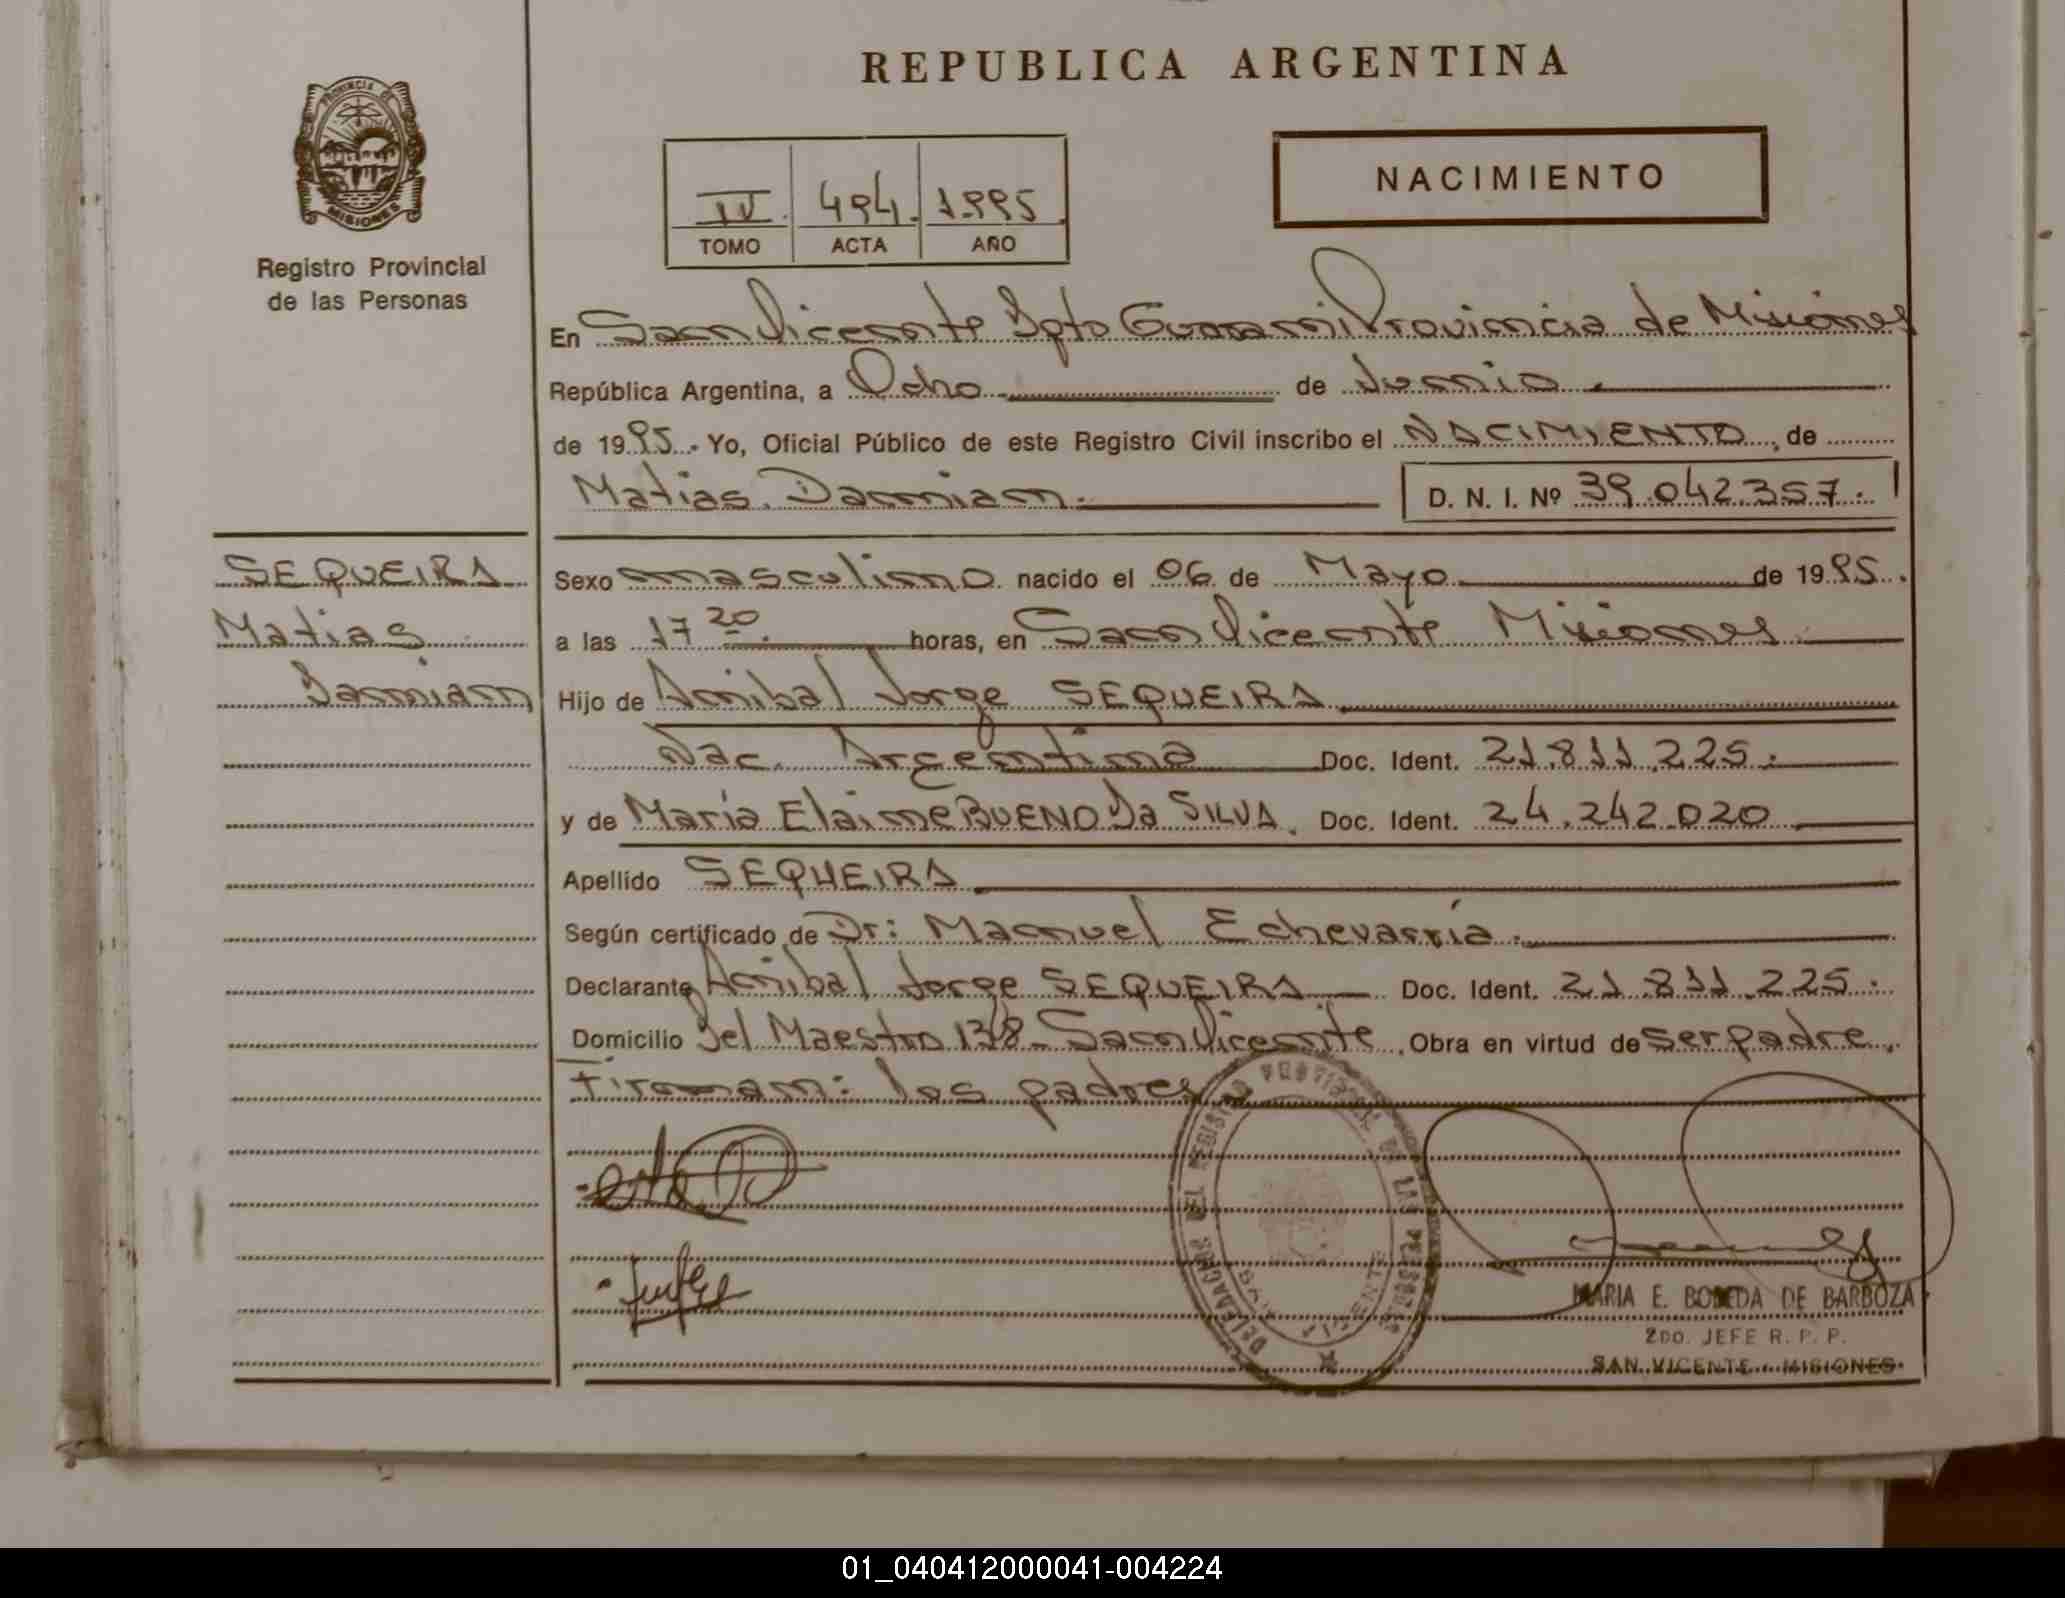 REPUBLICA ARGENTINA
PROVINCIA DE
MISIONES
Registro Provincial
de las Personas
IV. 494. 1.995
TOMO ACTA AÑO
NACIMIENTO
En San Vicente Dpto Guarani Provincia de Misiones
República Argentina, a Ocho de Junio.
de 1995.- Yo, Oficial Público de este Registro Civil inscribo el NACIMIENTO, de
Matias Damian.
D. N. I. Nº 39.042.357.
SEQUEIRA
Matias
Damian
Sexo masculino nacido el 06 de Mayo de 1995.
a las 17 20. horas, en San Vicente Misiones.
Hijo de Anibal Jorge SEQUEIRA
Nac. Argentina Doc. Ident. 21.811.225.
y de María Elaine BUENO Da SILVA. Doc. Ident. 24.242.020
Apellido SEQUEIRA
Según certificado de Dr: Manuel Echevarría.
Declarante Anibal Jorge SEQUEIRA Doc. Ident. 21.811.225.
Domicilio Del Maestro 138- San Vicente. Obra en virtud de ser padre.
Firman: los padres
DELEGACION DEL REGISTRO PROVINCIAL DE LAS PERSONAS
SAN VICENTE
MARIA E. DE BARBOZA
2DO. JEFE R. P. P.
SAN VICENTE - MISIONES
01_040412000041-004224